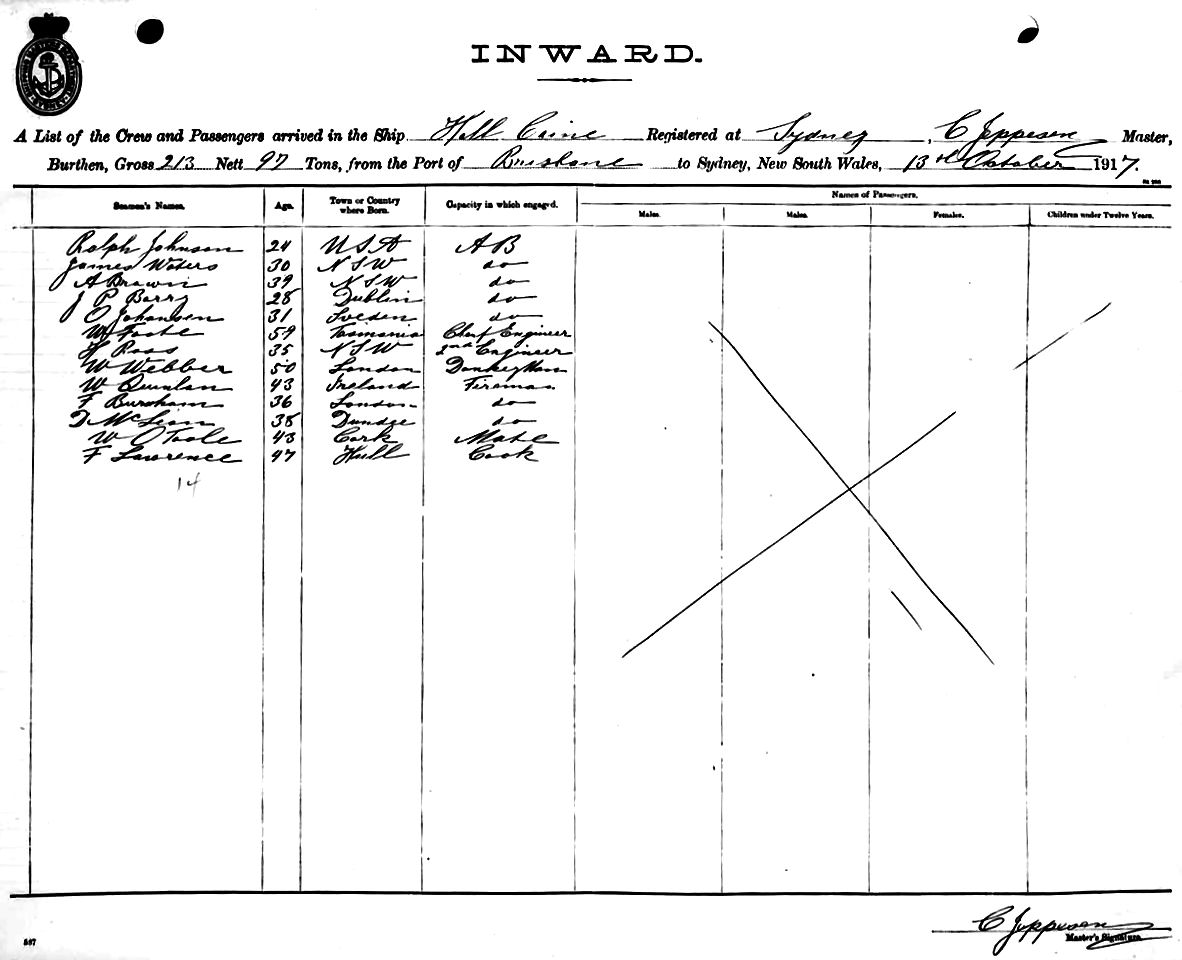 INWARD.
A List of the Crew and Passengers arrived in the Ship Hall Caine Registered at Sydney, C Jeppesen Master,
Burthen, Gross 213 Nett 97 Tons, from the Port of Brisbane to Sydney, New South Wales, 13th October 1917.
Seamen's Names. Age. Town or Country where Born. Capacity in which engaged. Names of Passengers.
Males. Males. Females. Children under Twelve Years.
Ralph Johnson 24 USA AB
James Waters 30 NSW do
A Brown 39 NSW do
J P Barry 28 Dublin do
O Johansen 31 Sveden do
W Foote 59 Tasmania Chief Engineer
H Roos 35 NSW 2nd Engineer
W Webber 50 London Donkey Man
W Quinlan 43 Ireland Fireman
F Burnham 36 London do
D McLean 38 Dundee do
W O Toole 43 Cork Mate
F Lawrence 47 Hull Cook
14
C Jeppesen
Master's Signature.
537